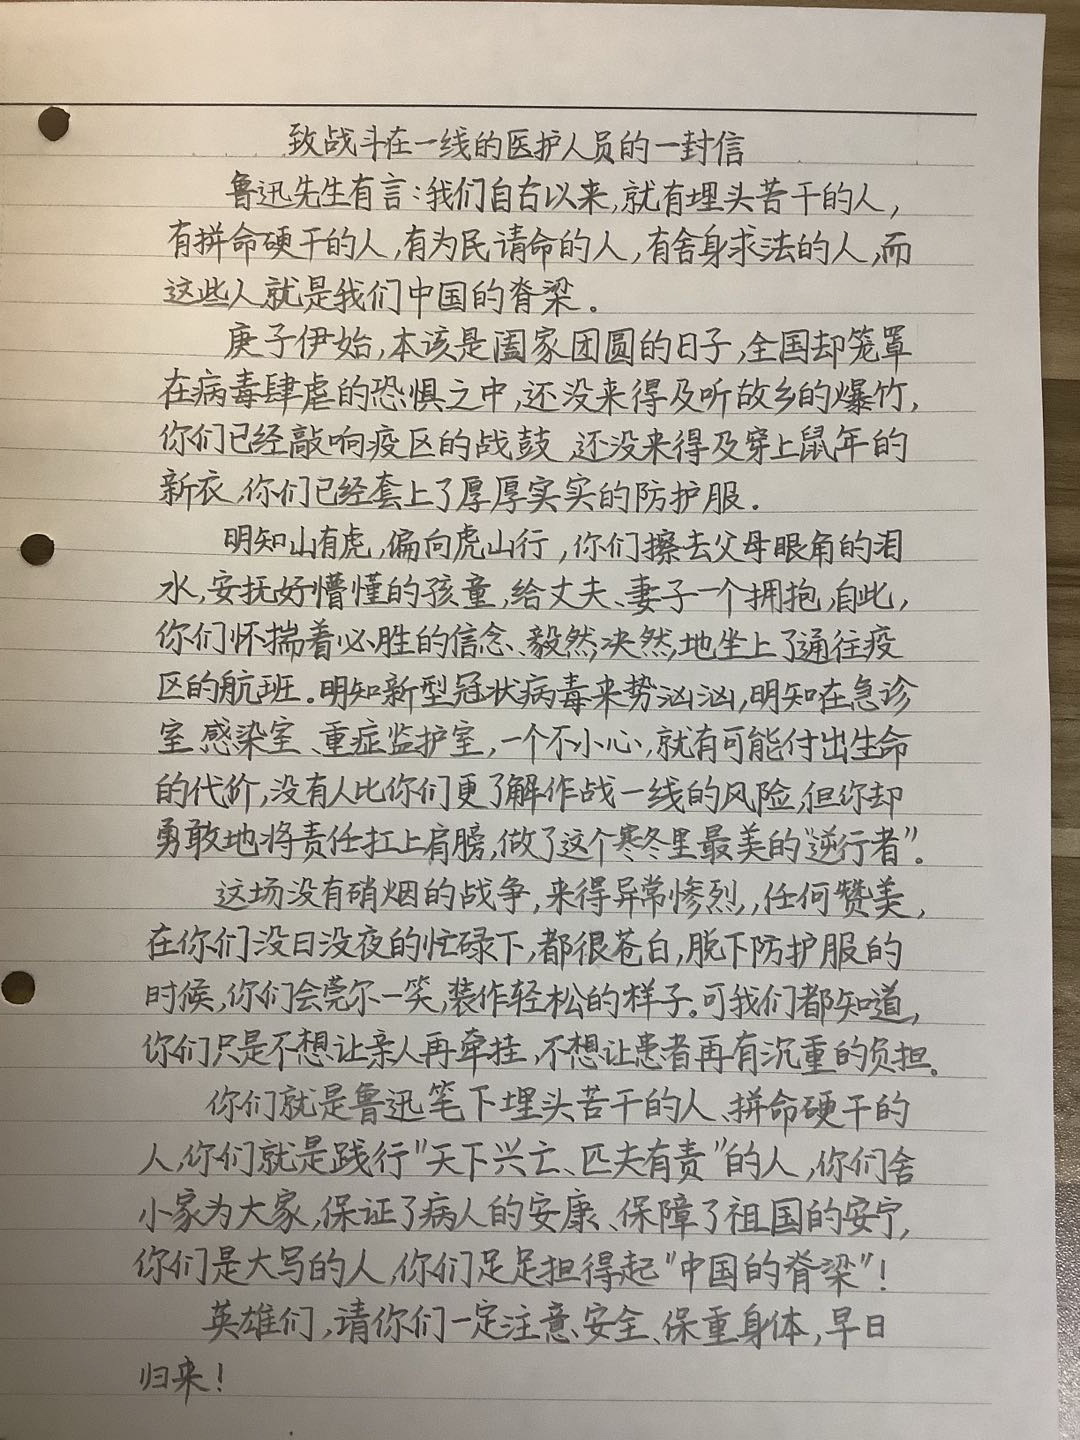 致战斗在一线的医护人员的一封信
鲁迅先生有言:我们自古以来,就有埋头苦干的人,
有拼命硬干的人,有为民请命的人,有舍身求法的人,而
这些人就是我们中国的脊梁。
庚子伊始,本该是阖家团圆的日子,全国却笼罩
在病毒肆虐的恐惧之中,还没来得及听故乡的爆竹,
你们已经敲响疫区的战鼓,还没来得及穿上鼠年的
新衣,你们已经套上了厚厚实实的防护服。
明知山有虎,偏向虎山行,你们擦去父母眼角的泪
水,安抚好懵懂的孩童,给丈夫、妻子一个拥抱,自此,
你们怀揣着必胜的信念、毅然决然地坐上了通往疫
区的航班。明知新型冠状病毒来势汹汹,明知在急诊
室、感染室、重症监护室,一个不小心,就有可能付出生命
的代价,没有人比你们更了解作战一线的风险,但你却
勇敢地将责任扛上肩膀,做了这个寒冬里最美的“逆行者”。
这场没有硝烟的战争,来得异常惨烈,,任何赞美,
在你们没日没夜的忙碌下,都很苍白,脱下防护服的
时候,你们会莞尔一笑,装作轻松的样子。可我们都知道,
你们只是不想让亲人再牵挂,不想让患者再有沉重的负担。
你们就是鲁迅笔下埋头苦干的人、拼命硬干的
人,你们就是践行“天下兴亡、匹夫有责”的人,你们舍
小家为大家,保证了病人的安康、保障了祖国的安宁,
你们是大写的人,你们足足担得起“中国的脊梁”!
英雄们,请你们一定注意安全、保重身体,早日
归来!